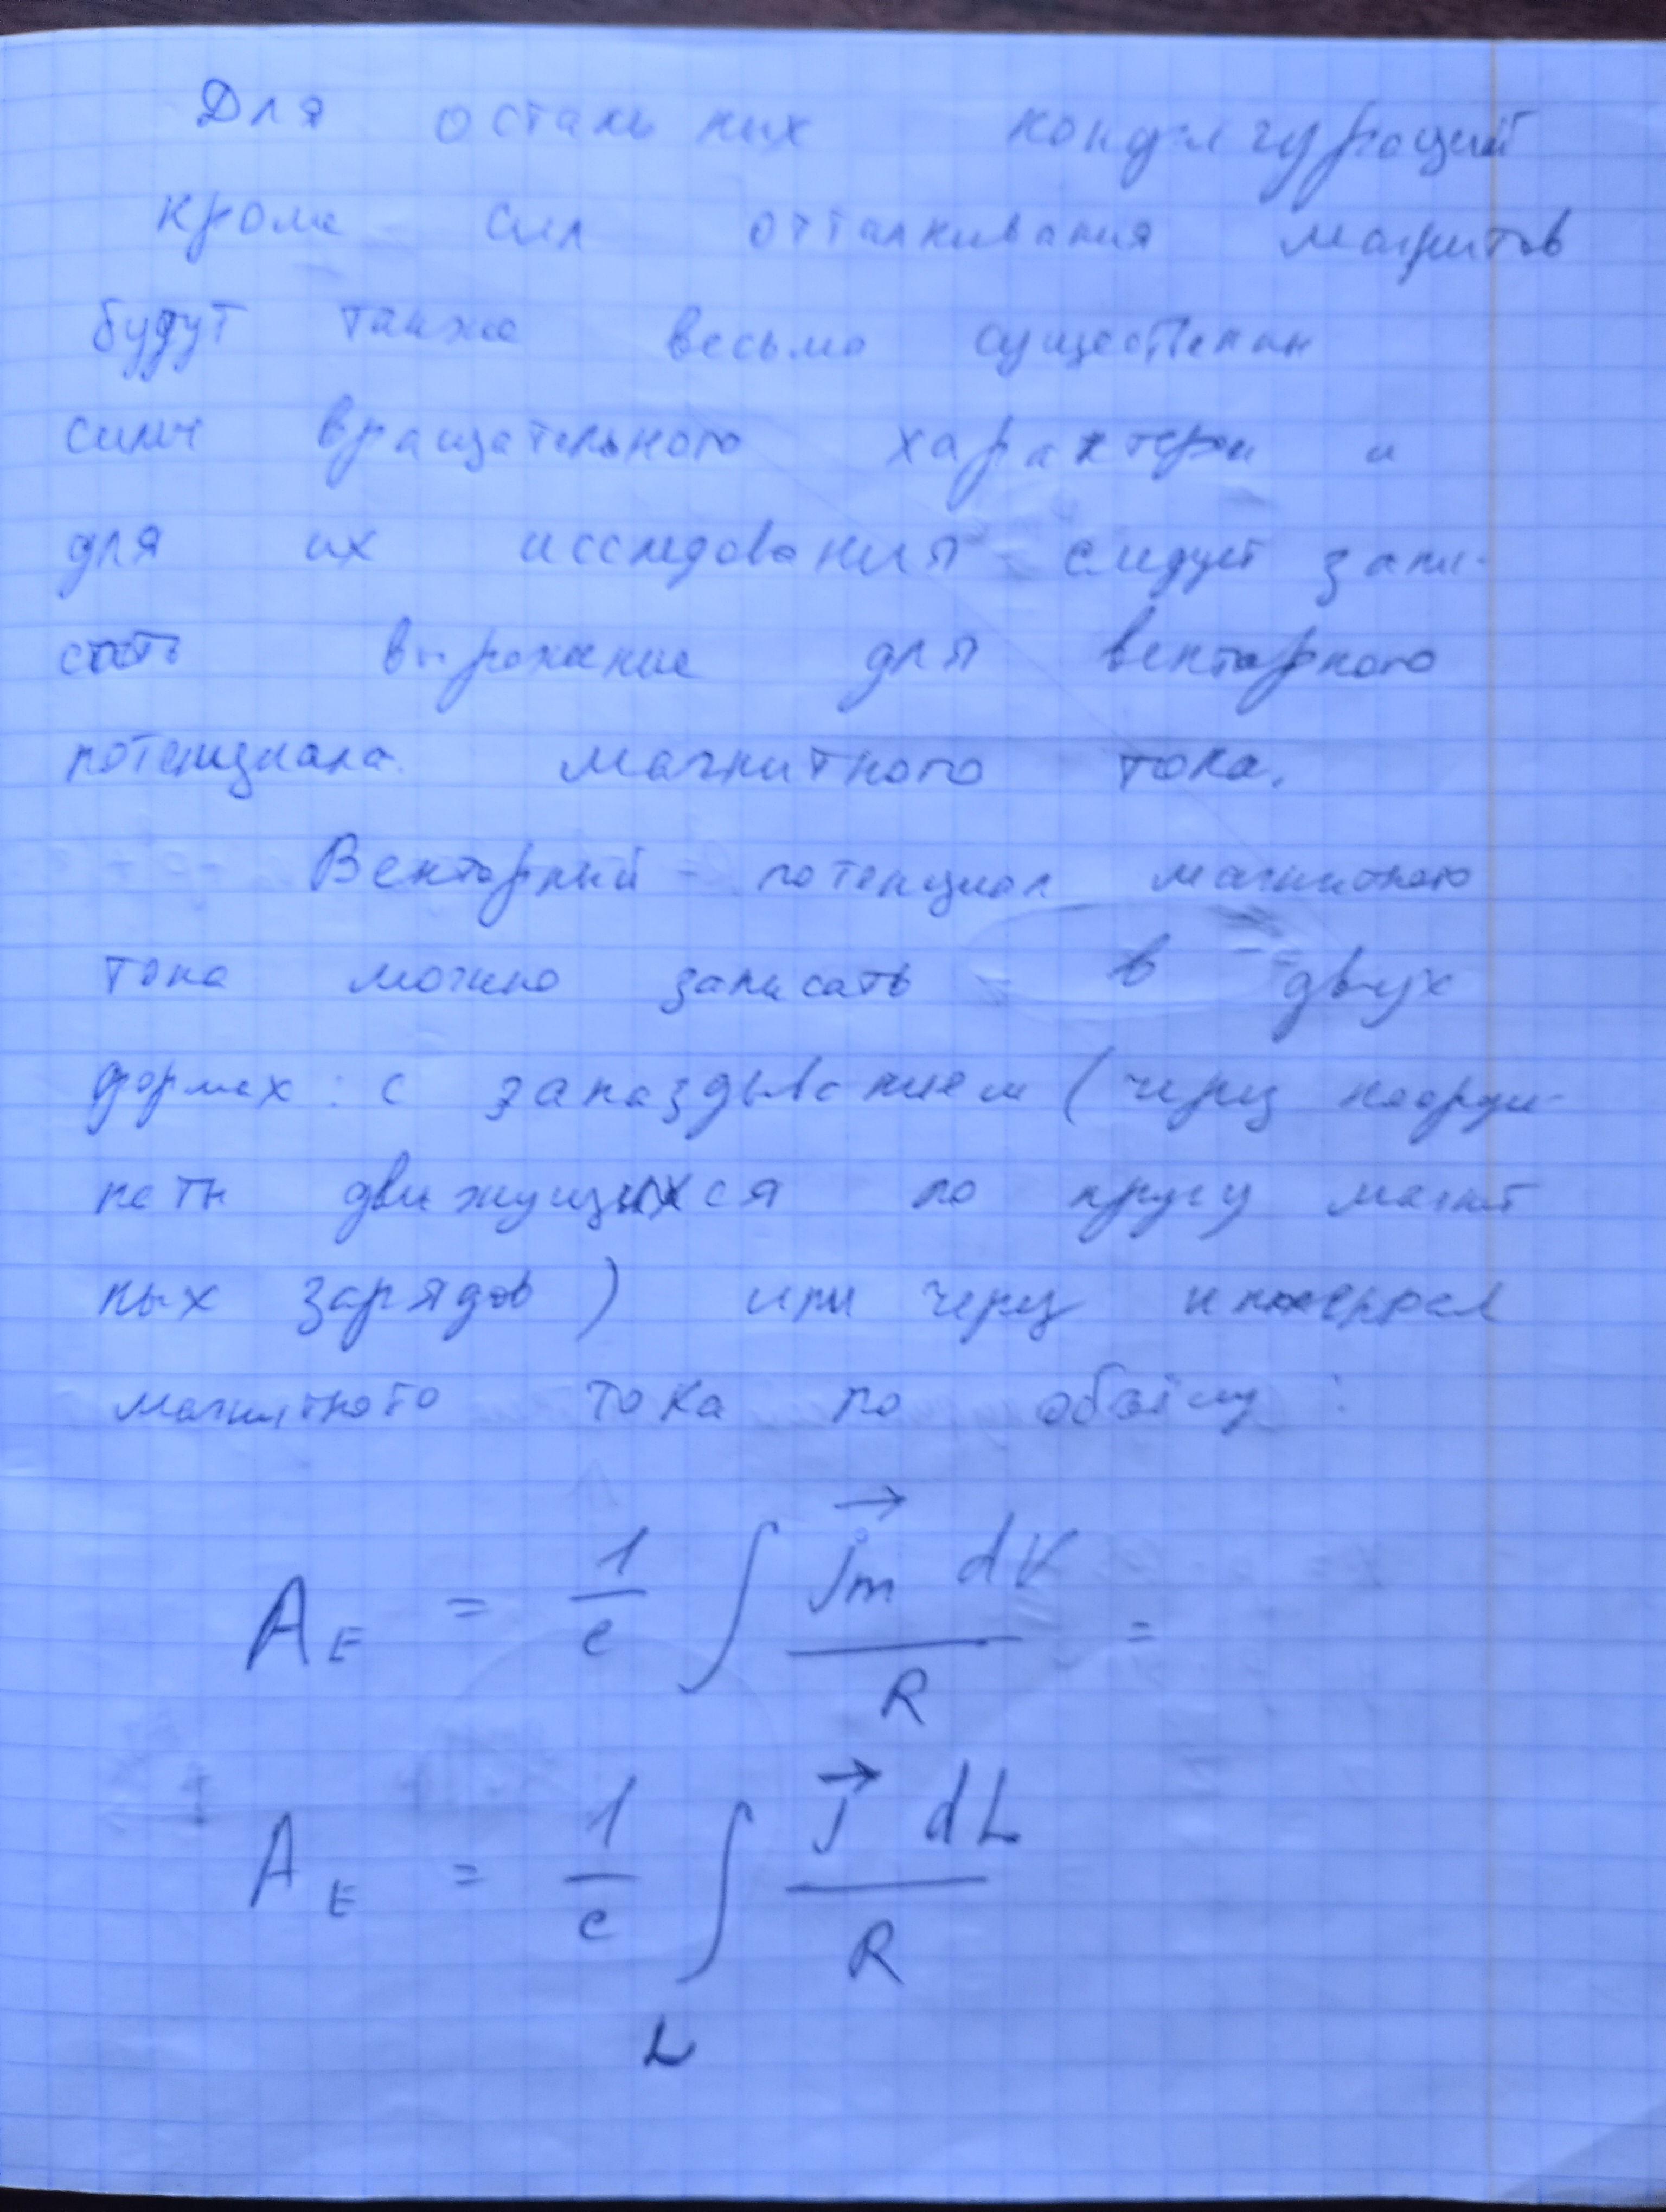 Для остальных конфигураций
кроме сил отталкивания магнитов
будут также весьма существенны
силы вращательного характера и
для их исследования следует запи-
сать выражение для векторного
потенциала магнитного тока.
Векторный - потенциал магнитного
тока можно записать в двух
формах: с запаздыванием (через коорди-
наты движущихся по кругу магнит
ных зарядов) или через интеграл
магнитного тока по объёму:
A_E = 1/c ∫ j⃗m dV / R =
A_E = 1/c ∫_L J⃗ dL / R